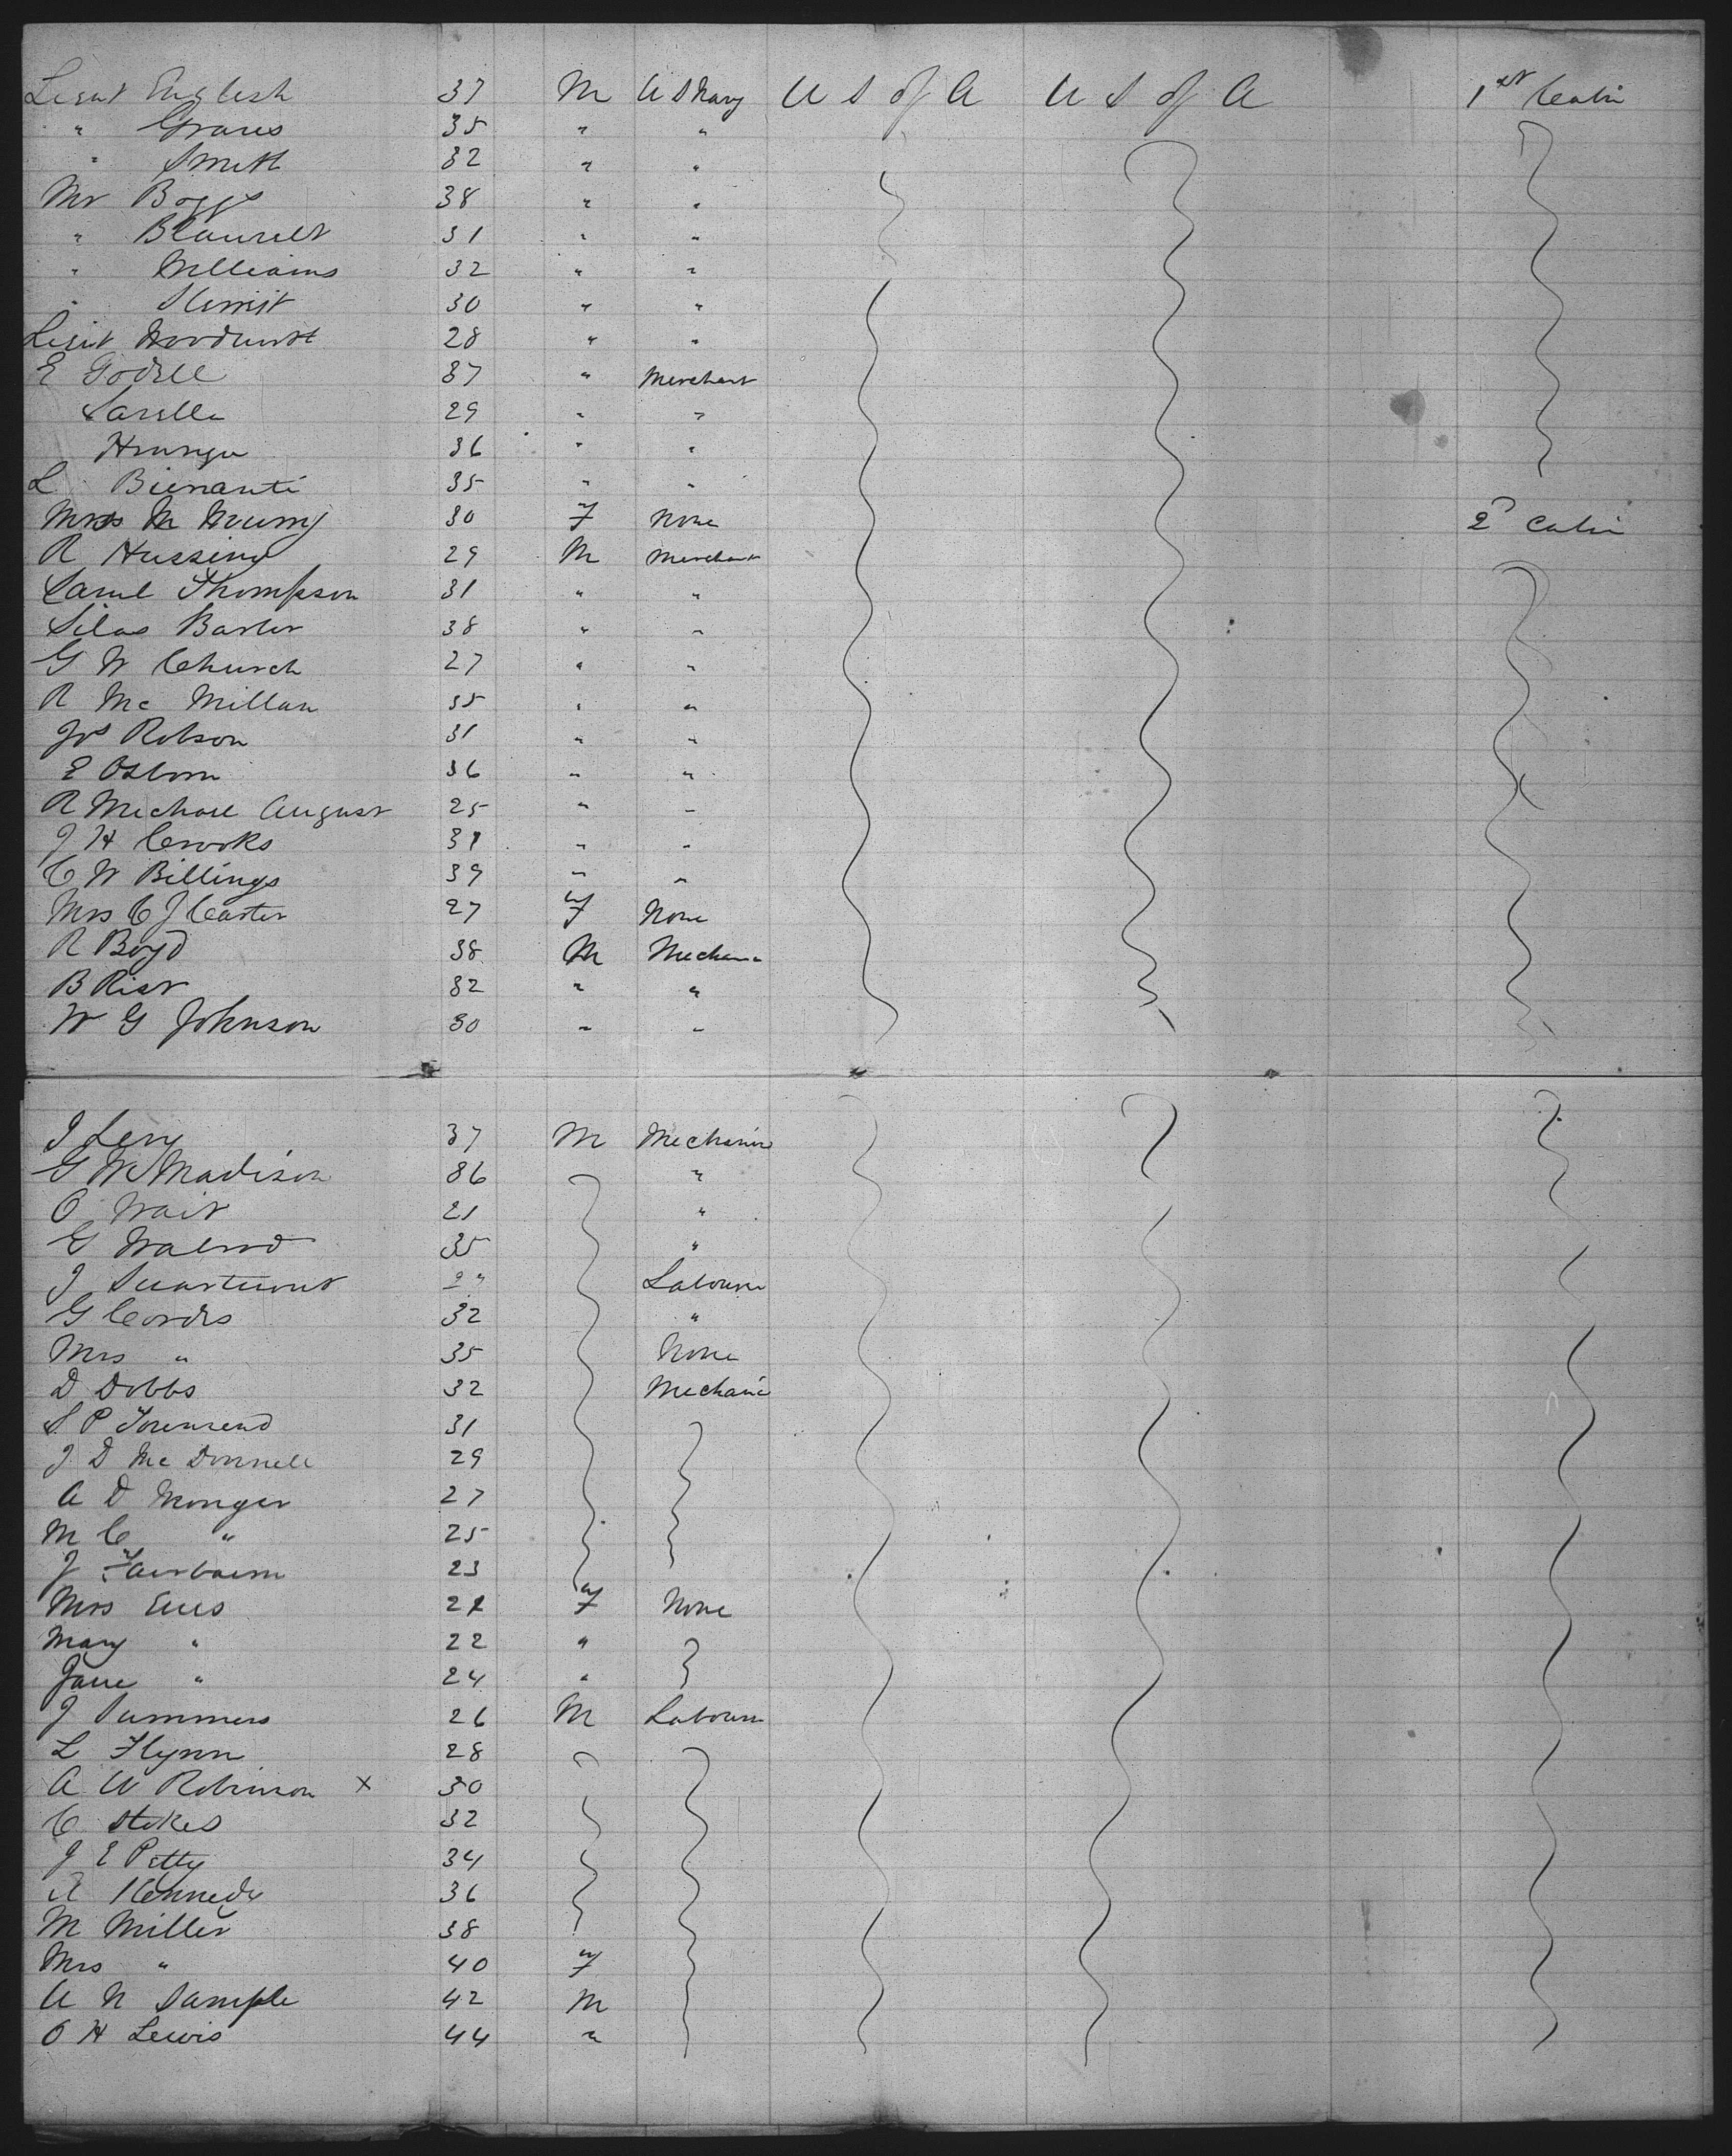 Lieut English 37 M U S Navy U S of A U S of A 1st Cabin
" Graves 35 " "
" Smith 32 " "
Mr Boggs 38 " "
" Blauvelt 31 " "
" Williams 32 " "
" 30 " "
Lieut 28 " "
E 37 " Merchant
29 " "
36 " "
L 35 " "
Mrs M 30 F None 2d Cabin
R 29 M Merchant
Saml Thompson 31 " "
Silas 38 " "
G W Church 27 " "
R Mc Millan 35 " "
Jos Robson 31 " "
E Osborn 36 " "
R Michael August 25 " "
J H Crooks 31 " "
C W Billings 39 " "
Mrs C J Carter 27 F None
R Boyd 38 M Mechanic
B Rist 32 " "
W G Johnson 30 " "
J Levy 37 M Mechanic
G W Madison 36 "
O Wait 21 "
G 35 "
J Labourer
G Cordes 32 "
Mrs " 35 None
D Dobbs 32 Mechanic
S P Townsend 31
J D Mc Donnell 29
A D Monger 27
M C " 25
J Fairbairn 23
Mrs F None
Mary " 22 "
Jane " 24 "
J Summers 26 M Labourer
L Flynn 28
A W Robinson x 30
C Stokes 32
J E Petty 34
A Kennedy 36
M Miller 38
Mrs " 40 F
A N Sample 42 M
O H Lewis 44 "